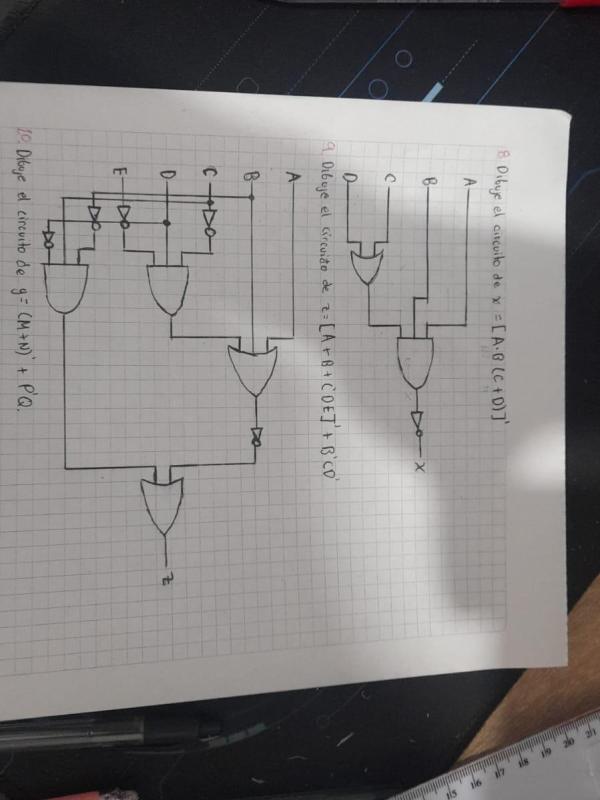 8. Dibuje el circuito de x = [A·B(C+D)]'
A
B
C
D
x
9. Dibuje el circuito de z = [A+B+C'DE]' + B'CD'
A
B
C
D
E
z
10. Dibuje el circuito de y = (M+N)' + P'Q.
15
16
17
18
19
20
21